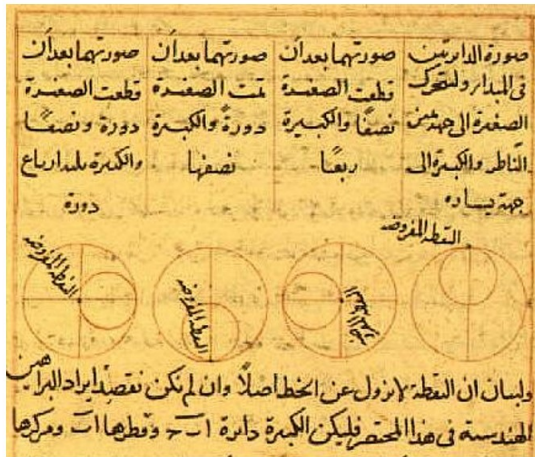 صورة الدايرتين
فى المبدا ولتتحرك
الصغيرة الى جهة يمين
الناظر والكبيرة الى
جهة يساره
صورتهما بعد ان
قطعت الصغيرة
نصفًا والكبيرة
ربعًا
صورتهما بعد ان
تمت الصغيرة
دورةً والكبيرة
نصفها
صورتهما بعد ان
قطعت الصغيرة
دورة ونصفًا
والكبيرة ثلثة ارباع
دورة
النقطة المفروضة
النقطة المفروضة
النقطة المفروضة
ولبيان ان النقطة لا تزول عن الخط اصلاً وان لم يكن نقصد ايراد البراهين
الهندسية فى هذا المختصر فليكن الكبيرة دائرة ا ب وقطرها ا ب ومركزها